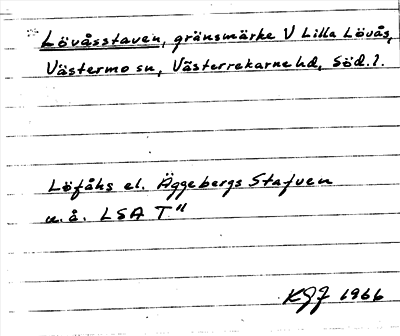 Lövåsstaven, gränsmärke V Lilla Lövås,
Västermo sn, Västerrekarne hd, Söd. l.
Löfåhs el. Äggebergs Stafven
u.å. LSA T"
KGJ 1966